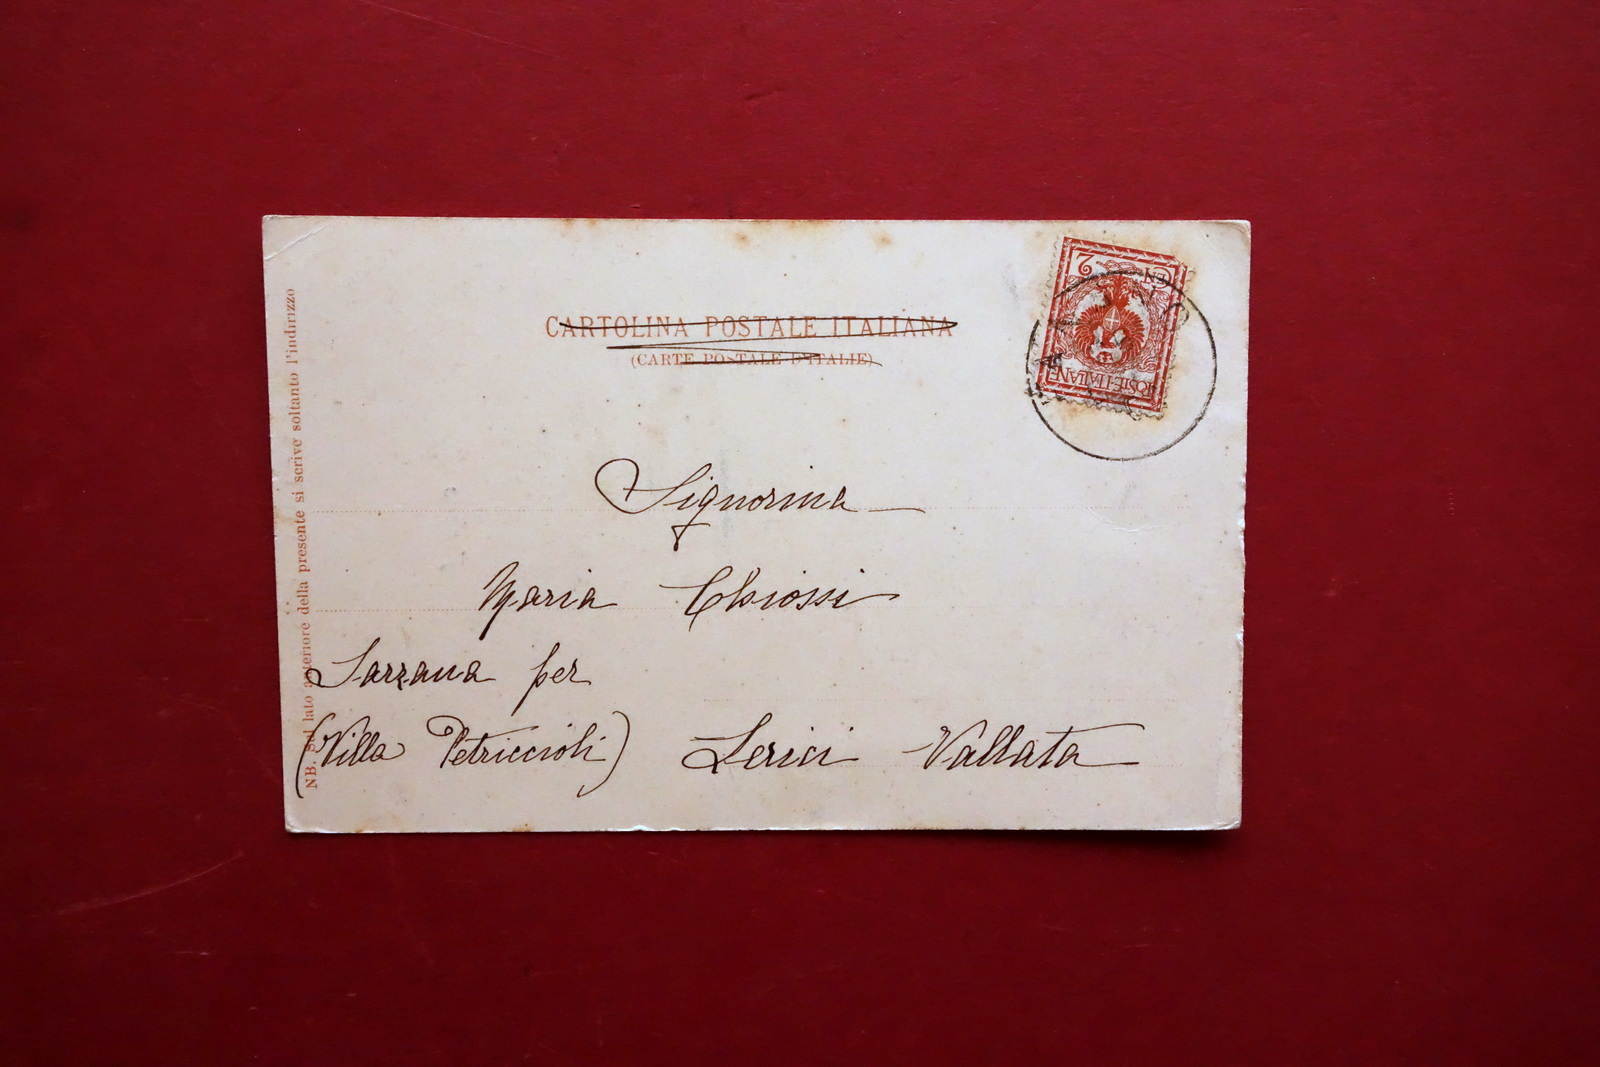 CARTOLINA POSTALE ITALIANA
(CARTE POSTALE D'ITALIE)
2
CEN
POSTE ITALIANE
Signorina
Maria Chiossi
Sarzana per
(Villa Petriccioli) Lerici Vallata
NB. Sul lato anteriore della presente si scrive soltanto l'indirizzo